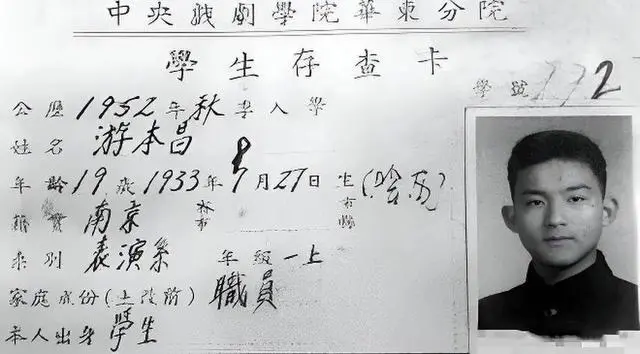 中央戲劇學院華東分院
學生存查卡
學號 2
公曆1952年秋季入學
姓名 游本昌
年齡19歲1933年8月27日生(陰历)
籍貫 南京 市縣
系別 表演系 年級 一上
家庭成份(土改前) 職員
本人出身 學生